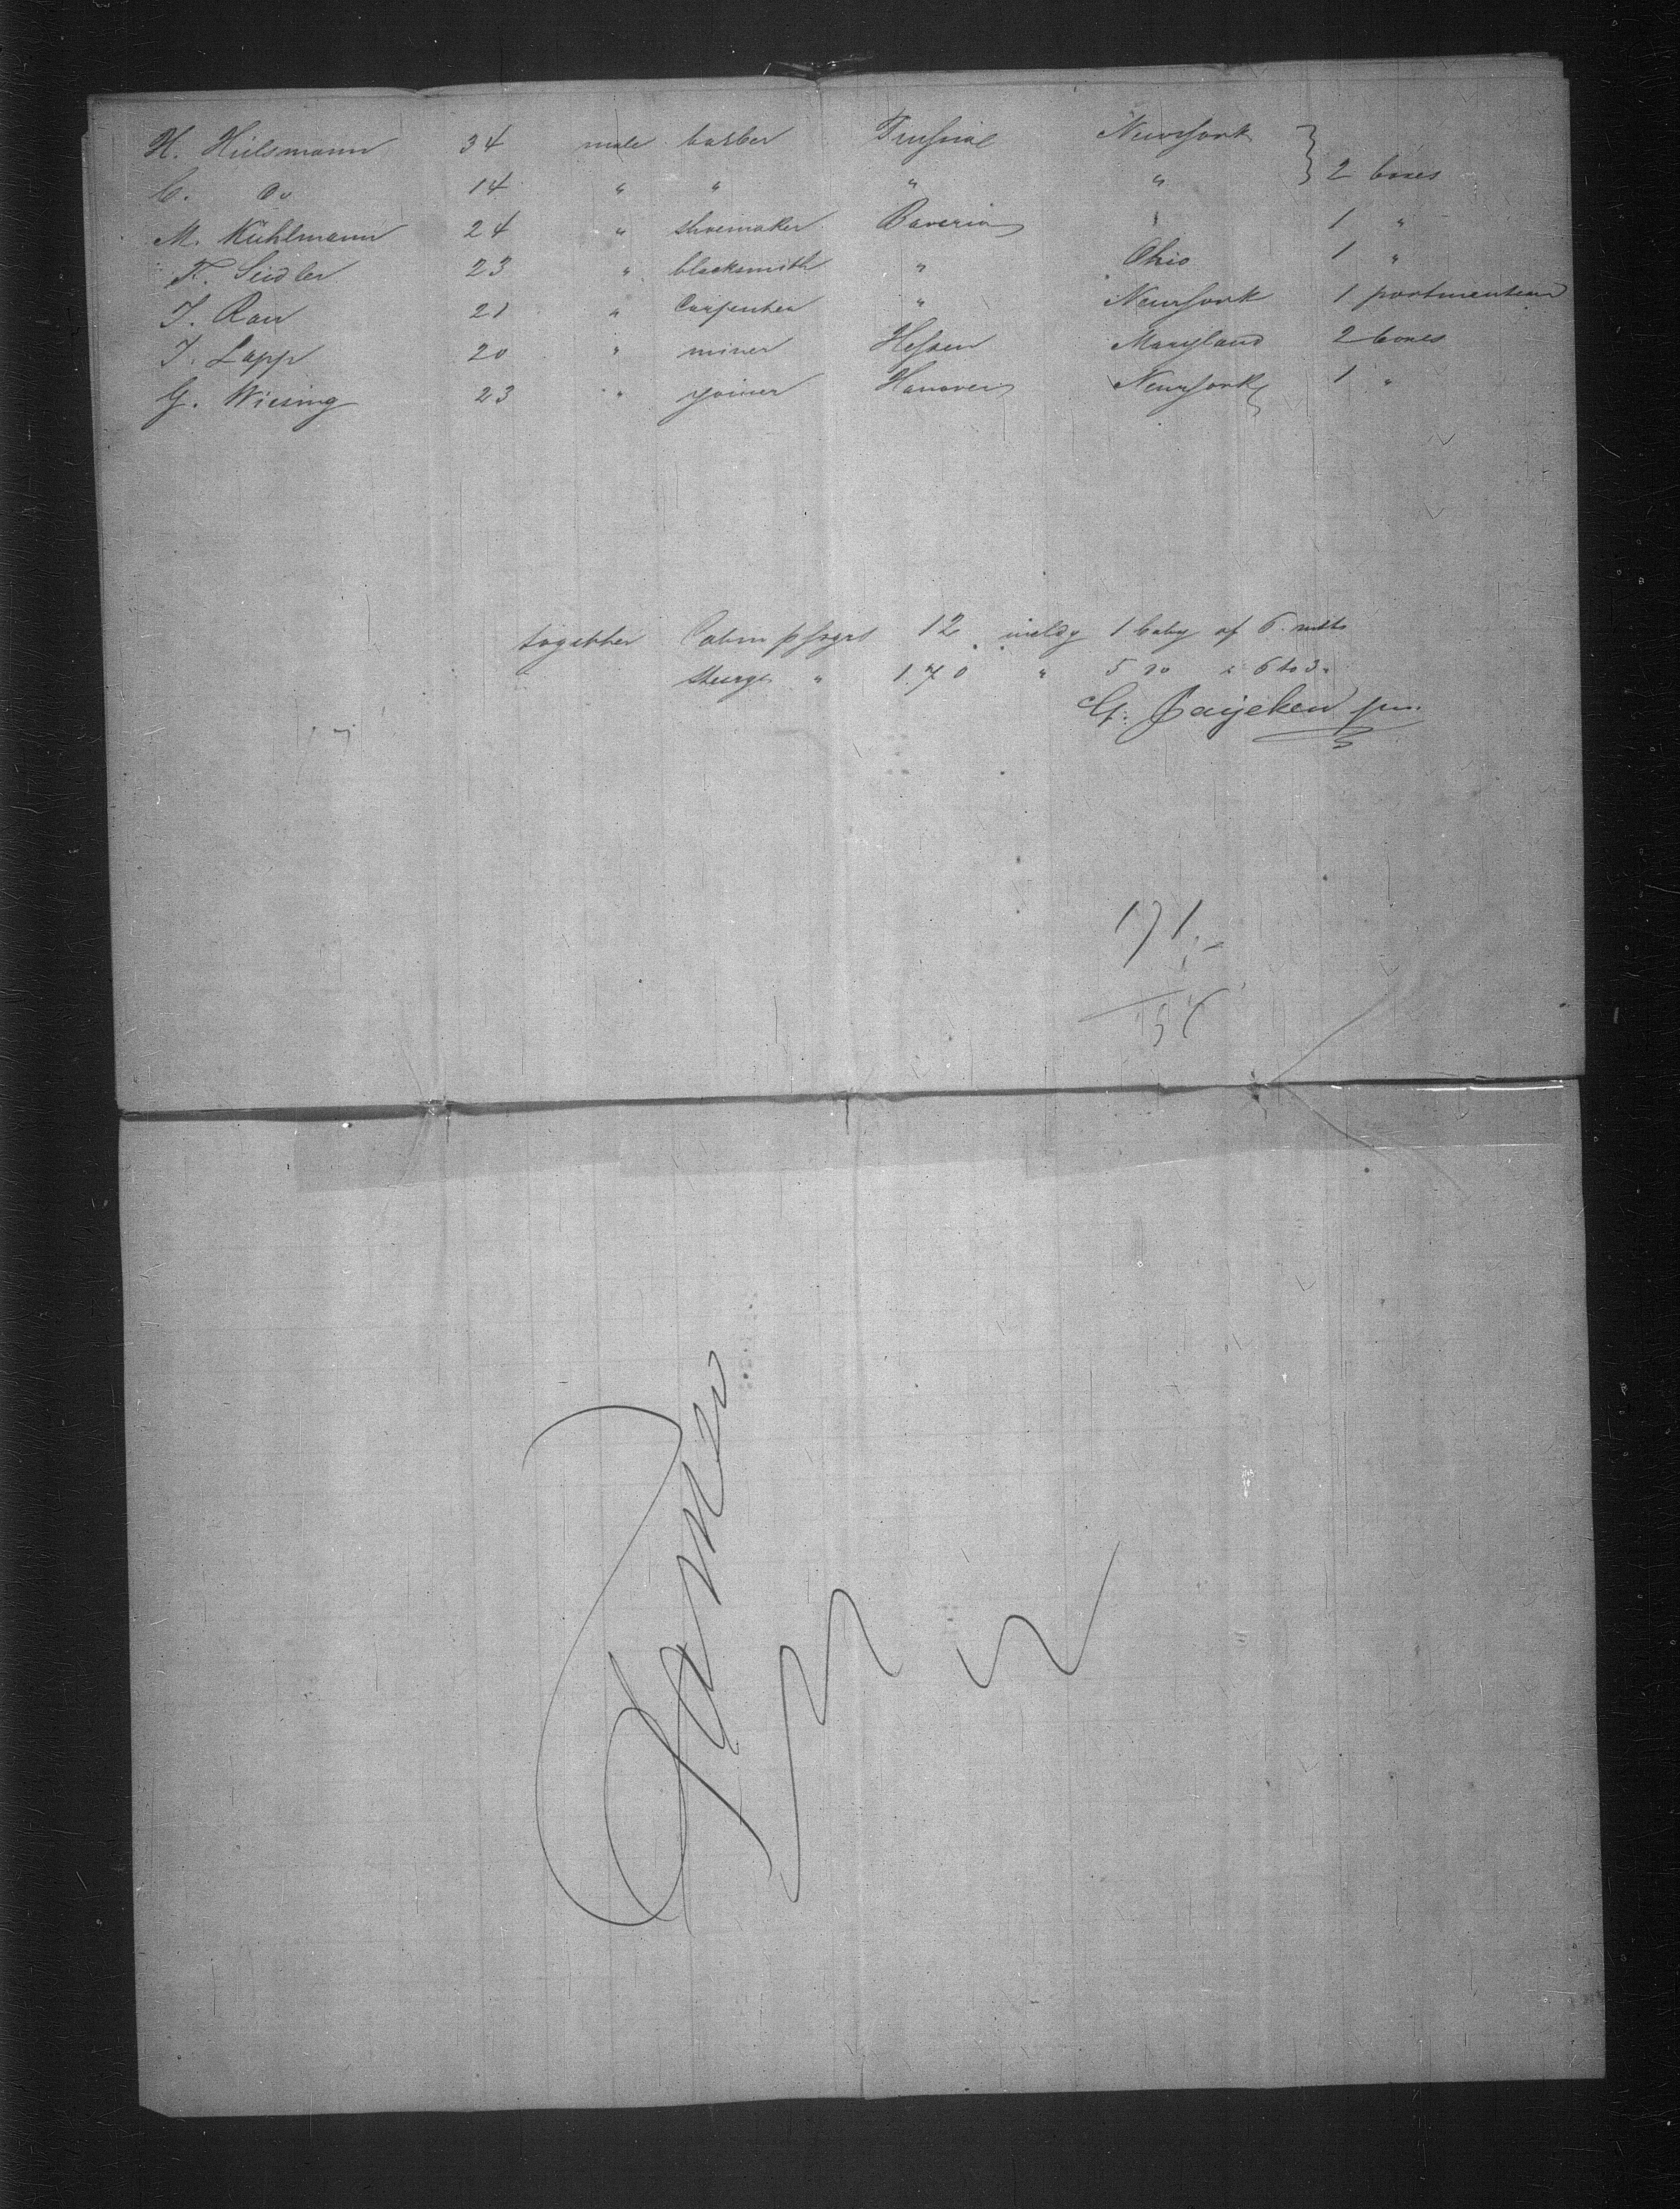 H. Hülsmann 34 male barber Prussia Newyork } 2 boxes
C. do 14 " " " "
M. Kühlmann 24 " shoemaker Bavaria " 1 "
F. Seidler 23 " blacksmith " Ohio 1 "
J. Rau 21 " Carpenter " Newyork 1 portmenteau
J. Lapp 20 " miner Hessen Maryland 2 boxes
G. Wiesing 23 " joiner Hanover Newyork 1 "
togethher Cabin pssgrs 12 incldg 1 baby of 6 mths
Steerge " 170 " 5 do " 6 to 3 "
G.
171